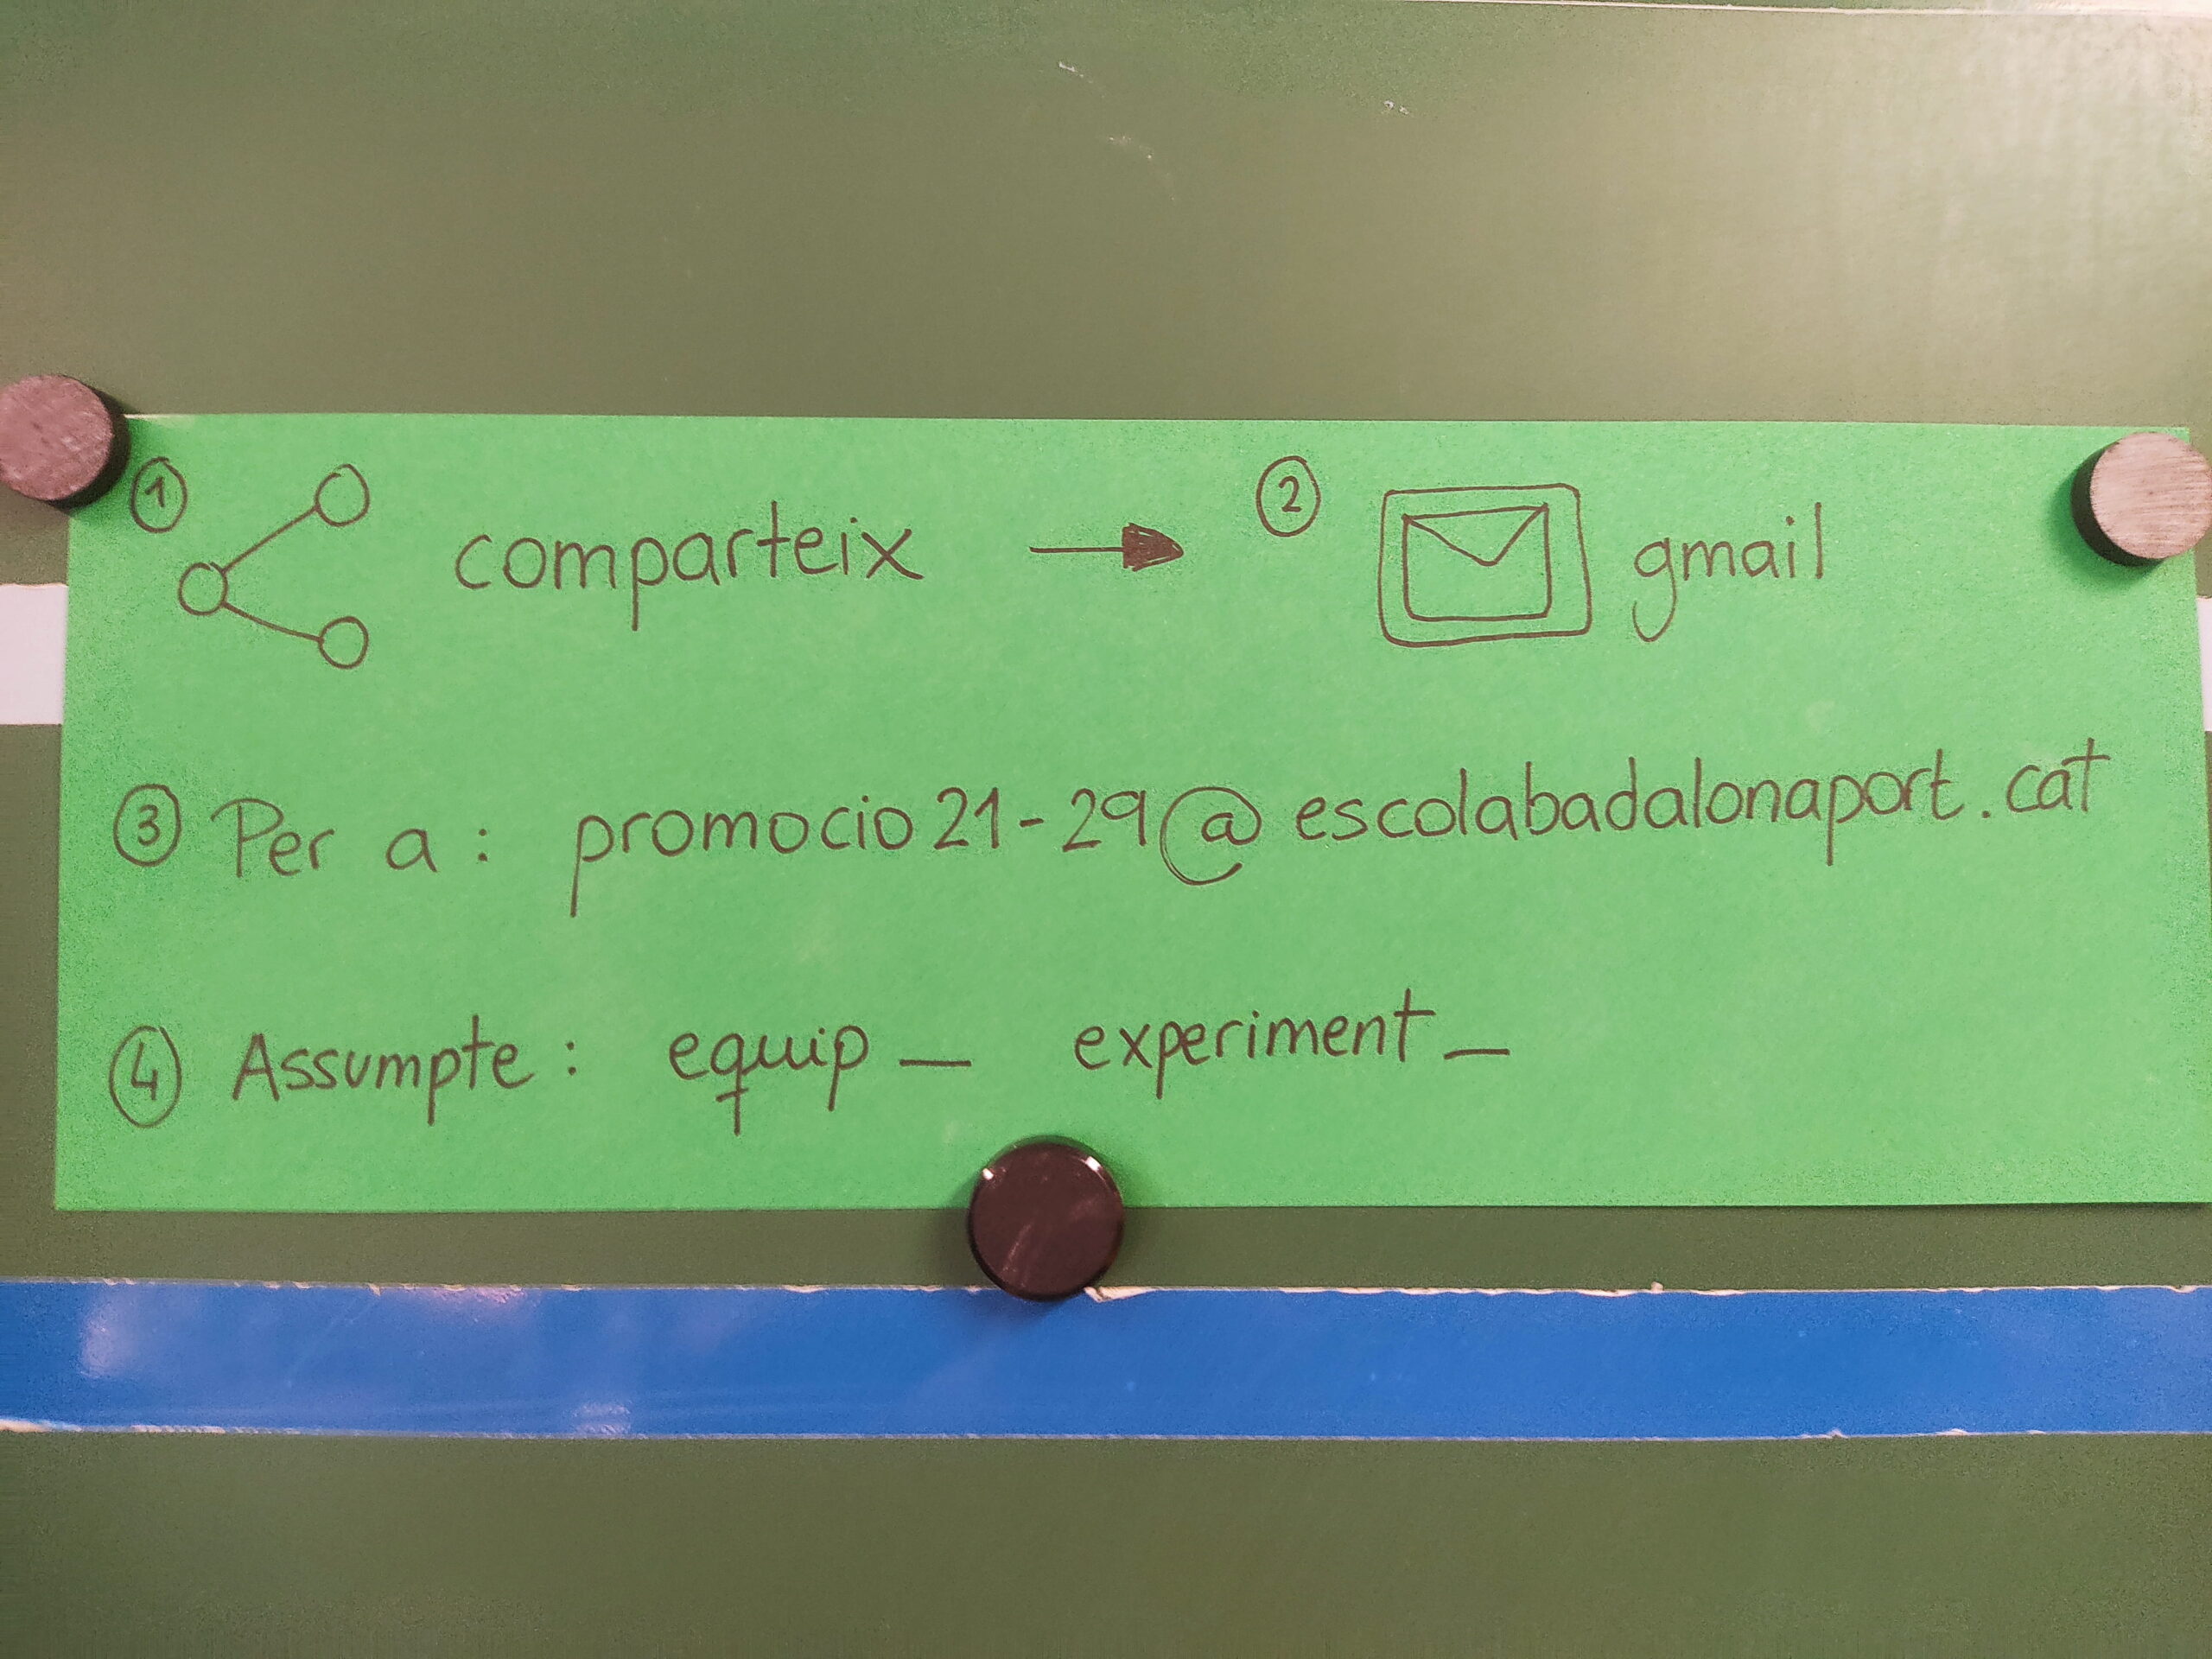 ① comparteix → ② gmail
③ Per a: promocio21-29@escolabadalonaport.cat
④ Assumpte: equip_ experiment_